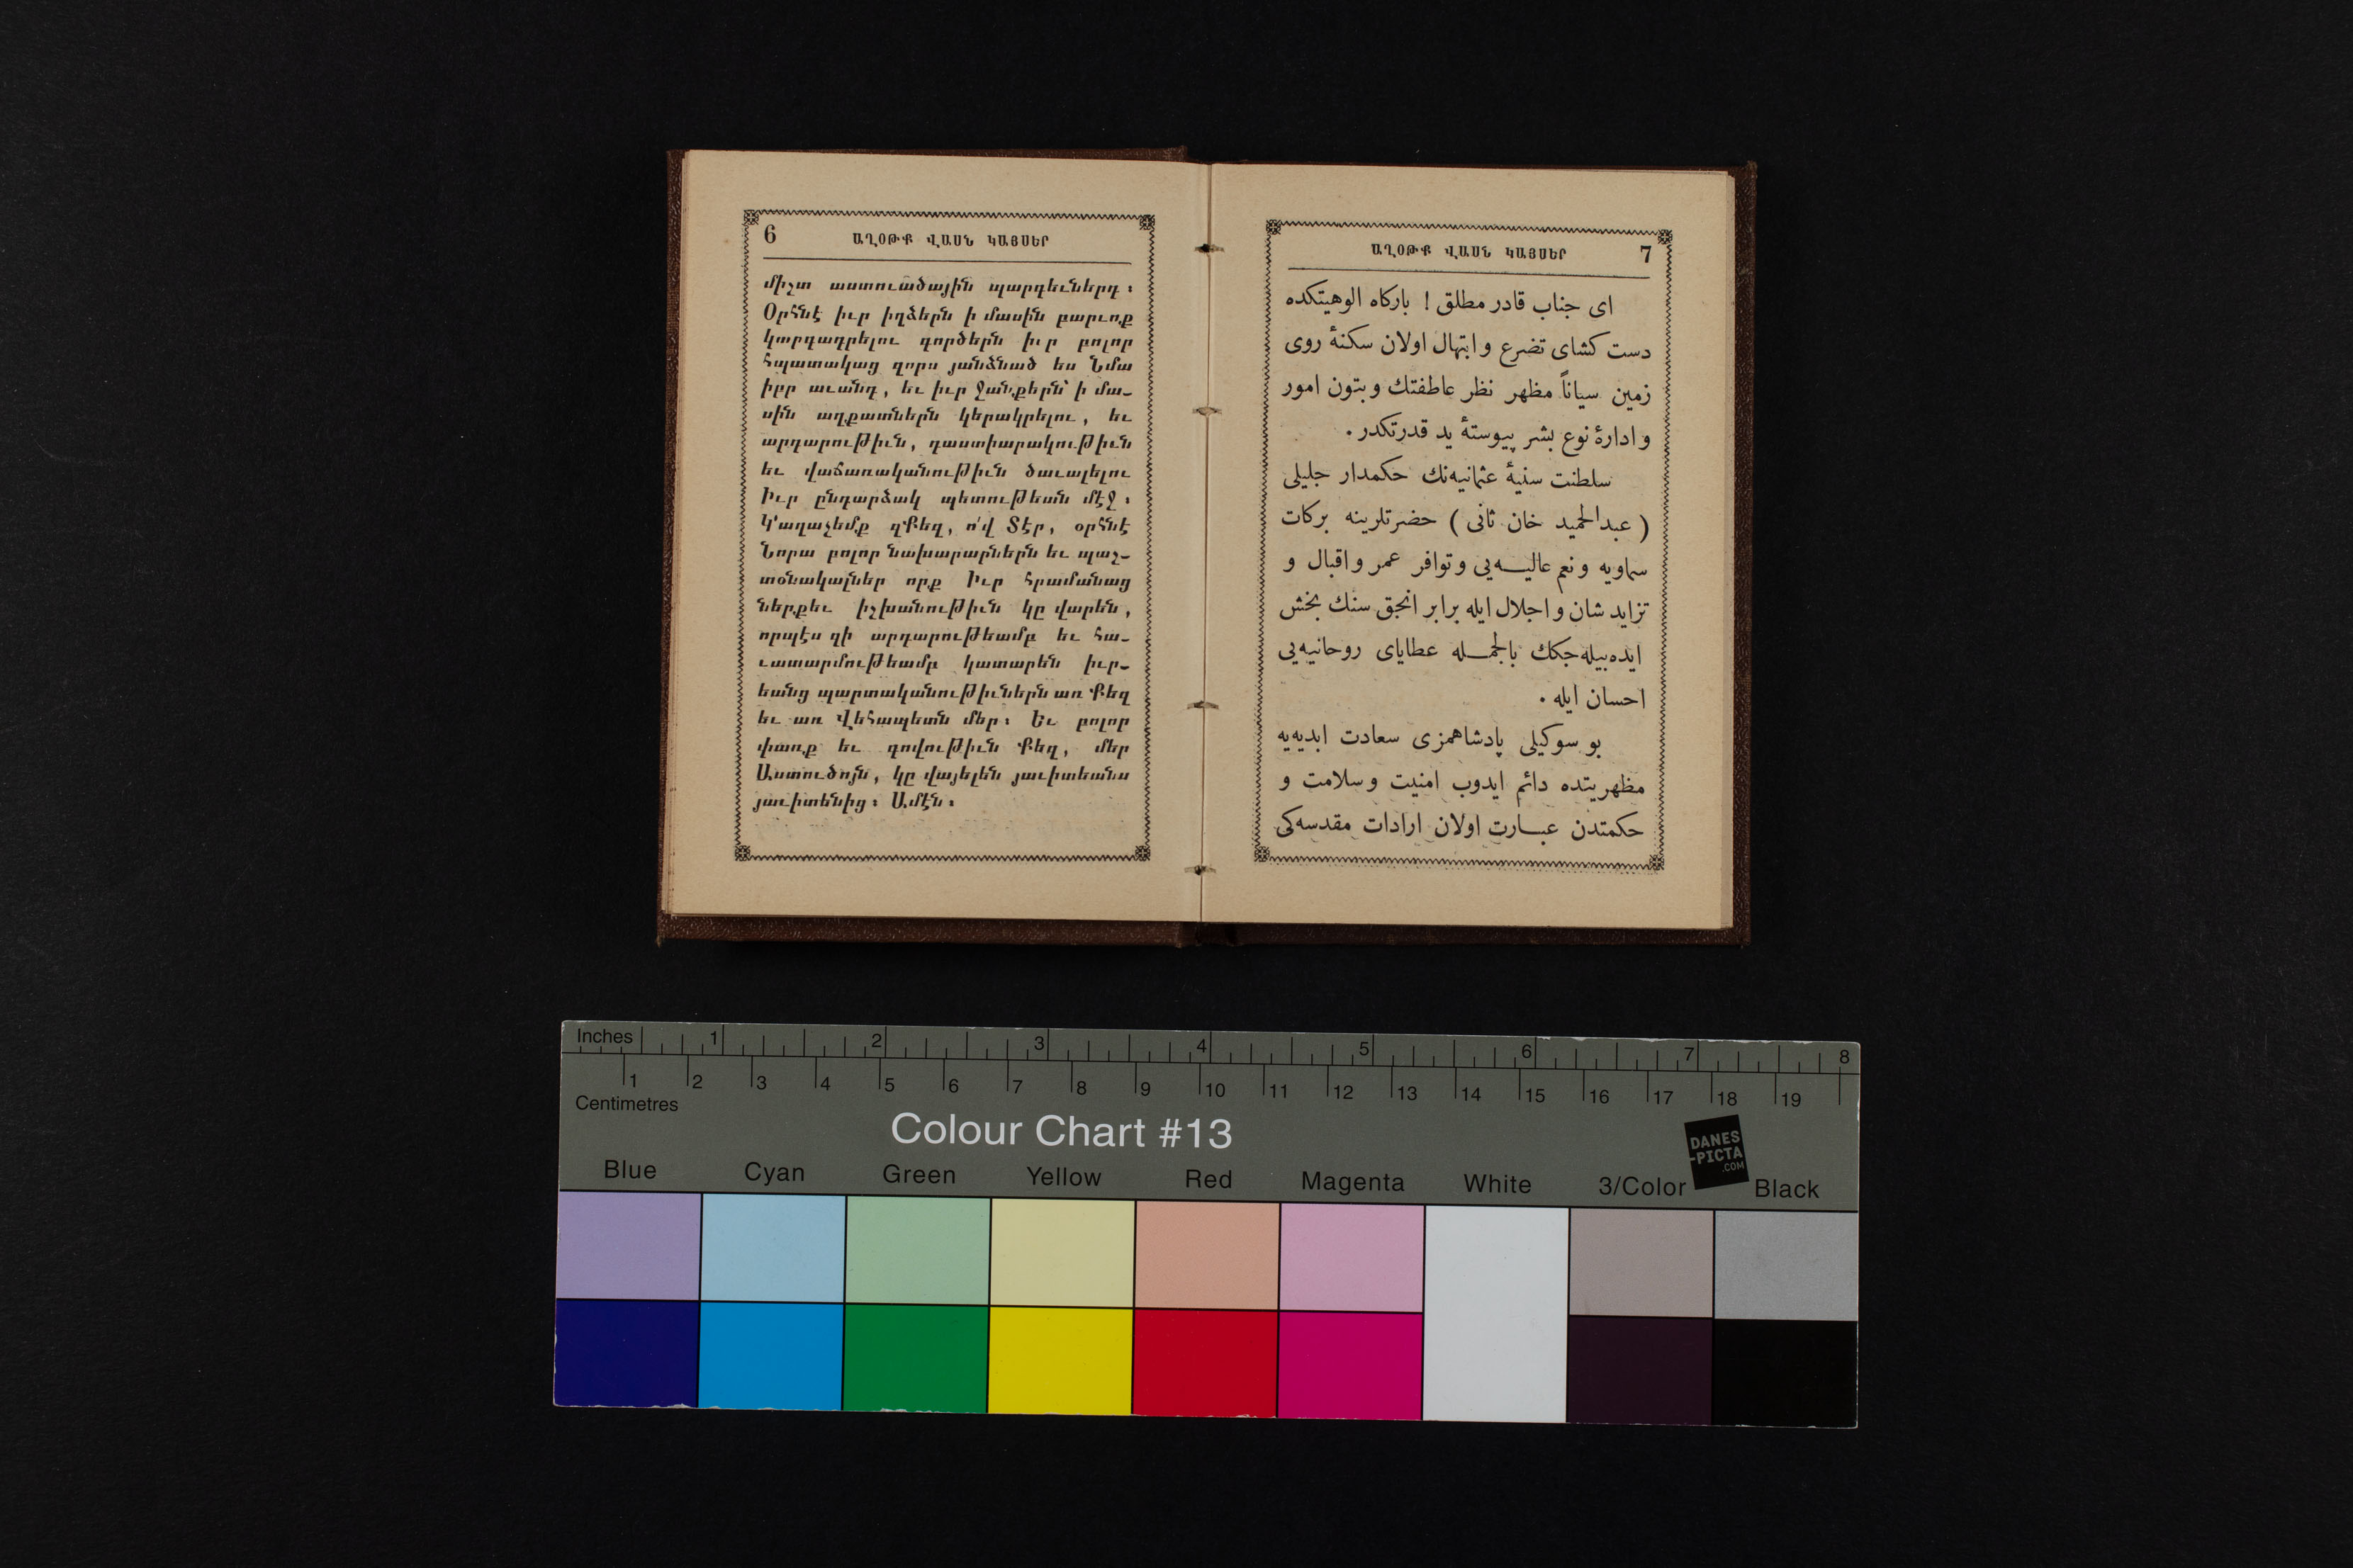 6 ԱՂՕԹՔ ՎԱՍՆ ԿԱՅՍԵՐ
միշտ աստուածային պարգեւներդ։
Օրհնէ իւր իղձերն ի մասին բարւոք
կարգադրելու գործերն իւր բոլոր
հպատակաց զորս յանձնած ես Նմա
իբր աւանդ, եւ իւր ջանքերն՝ ի մա-
սին աղքատներն կերակրելու, եւ
արդարութիւն, դաստիարակութիւն
եւ վաճառականութիւն ծաւալելու
Իւր ընդարձակ պետութեան մէջ։
Կ՚աղաչեմք զՔեզ, ո՛վ Տէր, օրհնէ
Նորա բոլոր նախարարներն եւ պաշ-
տօնակալներ որք Իւր հրամանաց
ներքեւ իշխանութիւն կը վարեն,
որպէս զի արդարութեամբ եւ հա-
ւատարմութեամբ կատարեն իւր-
եանց պարտականութիւններն առ Քեզ
եւ առ Վեհապետն մեր։ Եւ բոլոր
փառք եւ գովութիւն Քեզ, մեր
Աստուծոյն, կը վայելեն յաւիտեանս
յաւիտենից։ Ամէն։
ԱՂՕԹՔ ՎԱՍՆ ԿԱՅՍԵՐ 7
ای جناب قادر مطلق ! بارکاه الوهیتکده
دست کشای تضرع و ابتهال اولان سکنهٔ روی
زمین سیاناً مظهر نظر عاطفتك و بتون امور
و ادارهٔ نوع بشر پیوستهٔ ید قدرتکدر .
سلطنت سنیهٔ عثمانیه‌نك حکمدار جلیلی
( عبدالحمید خان ثانی ) حضرتلرینه برکات
سماویه و نعم عالیـه‌یی و توافر عمر و اقبال و
تزاید شان و اجلال ایله برابر انجق سنك بخش
ایده‌بیله‌جکك بالجمـله عطایای روحانیه‌یی
احسان ایله .
بو سوکیلی پادشاهمزی سعادت ابدیه‌یه
مظهریتده دائم ایدوب امنیت و سلامت و
حکمتدن عبـارت اولان ارادات مقدسه‌کی
Inches 1 2 3 4 5 6 7 8
1 2 3 4 5 6 7 8 9 10 11 12 13 14 15 16 17 18 19
Centimetres
Colour Chart #13
DANES
-PICTA
.COM
Blue Cyan Green Yellow Red Magenta White 3/Color Black